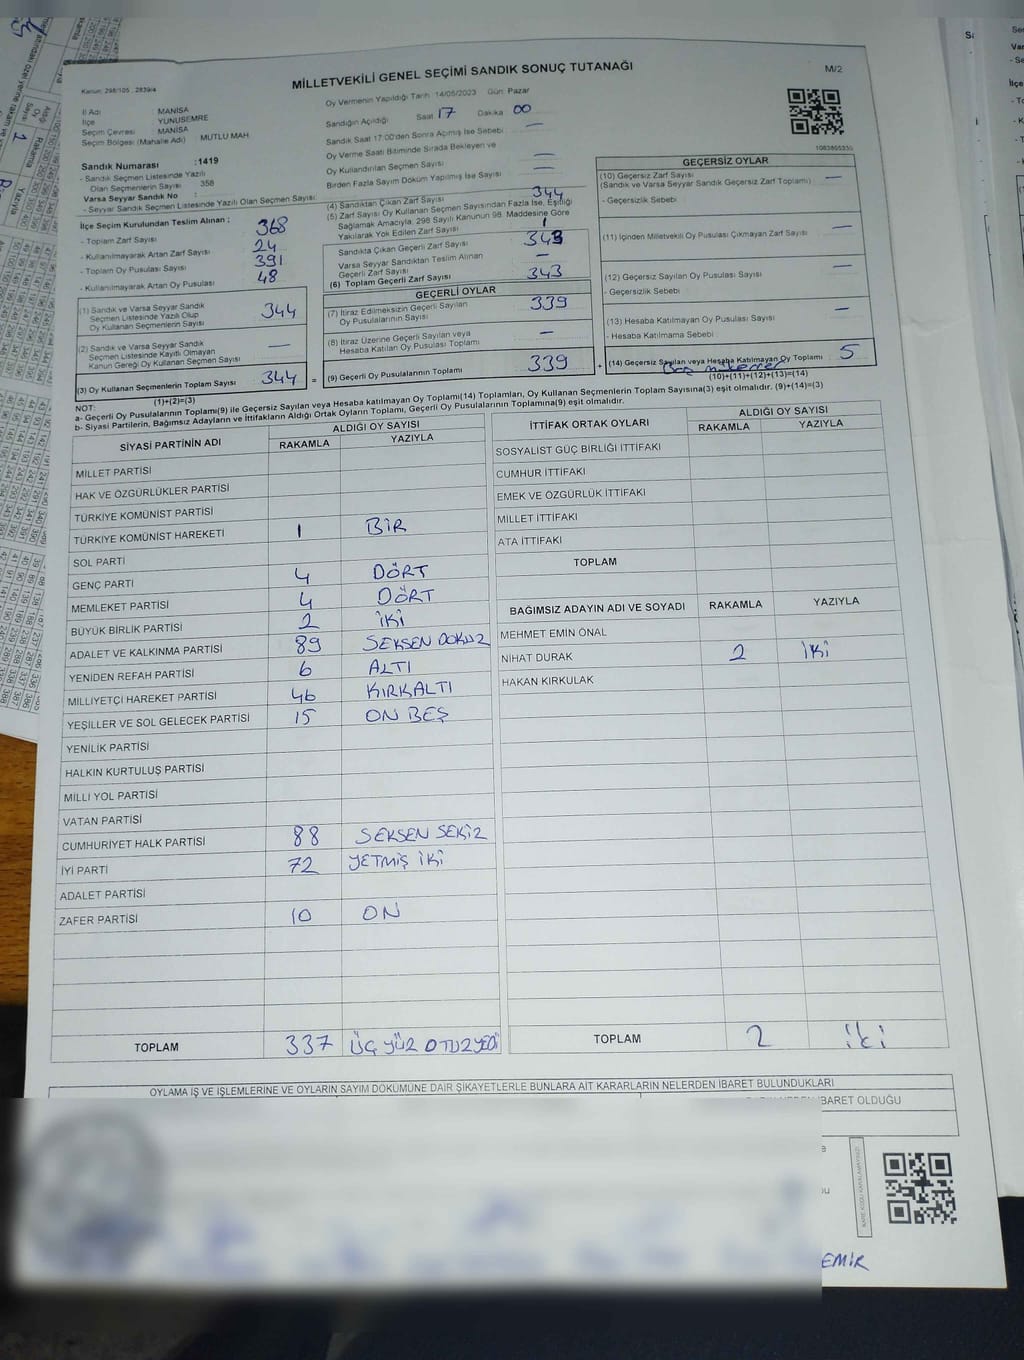 MİLLETVEKİLİ GENEL SEÇİMİ SANDIK SONUÇ TUTANAĞI
M/2
Kanun: 298/105 , 2839/4
İl Adı : MANİSA
İlçe : YUNUSEMRE
Seçim Çevresi : MANİSA
Seçim Bölgesi (Mahalle Adı) MUTLU MAH.
Sandık Numarası :1419
- Sandık Seçmen Listesinde Yazılı
Olan Seçmenlerin Sayısı 358
Varsa Seyyar Sandık No :
- Seyyar Sandık Seçmen Listesinde Yazılı Olan Seçmen Sayısı:
Oy Vermenin Yapıldığı Tarih :14/05/2023 Gün: Pazar
Sandığın Açıldığı Saat 17 Dakika 00
Sandık Saat 17:00'den Sonra Açılmış İse Sebebi —
Oy Verme Saati Bitiminde Sırada Bekleyen ve
Oy Kullandırılan Seçmen Sayısı —
Birden Fazla Sayım Döküm Yapılmış İse Sayısı —
1083895335
İlçe Seçim Kurulundan Teslim Alınan ;
- Toplam Zarf Sayısı 368
- Kullanılmayarak Artan Zarf Sayısı 24
- Toplam Oy Pusulası Sayısı 391
- Kullanılmayarak Artan Oy Pusulası 48
(1) Sandık ve Varsa Seyyar Sandık
Seçmen Listesinde Yazılı Olup
Oy Kullanan Seçmenlerin Sayısı 344
(2) Sandık ve Varsa Seyyar Sandık
Seçmen Listesinde Kayıtlı Olmayan
Kanun Gereği Oy Kullanan Seçmen Sayısı —
(3) Oy Kullanan Seçmenlerin Toplam Sayısı 344 =
(1)+(2)=(3)
(4) Sandıktan Çıkan Zarf Sayısı 344
(5) Zarf Sayısı Oy Kullanan Seçmen Sayısından Fazla İse, Eşitliği
Sağlamak Amacıyla, 298 Sayılı Kanunun 98. Maddesine Göre
Yakılarak Yok Edilen Zarf Sayısı 1
Sandıkta Çıkan Geçerli Zarf Sayısı 343
Varsa Seyyar Sandıktan Teslim Alınan
Geçerli Zarf Sayısı —
(6) Toplam Geçerli Zarf Sayısı 343
GEÇERLİ OYLAR
(7) İtiraz Edilmeksizin Geçerli Sayılan
Oy Pusulalarının Sayısı 339
(8) İtiraz Üzerine Geçerli Sayılan veya
Hesaba Katılan Oy Pusulası Toplamı —
(9) Geçerli Oy Pusulalarının Toplamı 339 +
GEÇERSİZ OYLAR
(10) Geçersiz Zarf Sayısı —
(Sandık ve Varsa Seyyar Sandık Geçersiz Zarf Toplamı)
- Geçersizlik Sebebi
(11) İçinden Milletvekili Oy Pusulası Çıkmayan Zarf Sayısı —
(12) Geçersiz Sayılan Oy Pusulası Sayısı —
- Geçersizlik Sebebi
(13) Hesaba Katılmayan Oy Pusulası Sayısı —
- Hesaba Katılmama Sebebi :
(14) Geçersiz Sayılan veya Hesaba Katılmayan Oy Toplamı 5
(10)+(11)+(12)+(13)=(14)
NOT:
a- Geçerli Oy Pusulalarının Toplamı(9) ile Geçersiz Sayılan veya Hesaba katılmayan Oy Toplamı(14) Toplamları, Oy Kullanan Seçmenlerin Toplam Sayısına(3) eşit olmalıdır. (9)+(14)=(3)
b- Siyasi Partilerin, Bağımsız Adayların ve İttifakların Aldığı Ortak Oyların Toplamı, Geçerli Oy Pusulalarının Toplamına(9) eşit olmalıdır.
SİYASİ PARTİNİN ADI ALDIĞI OY SAYISI
RAKAMLA YAZIYLA
MİLLET PARTİSİ
HAK VE ÖZGÜRLÜKLER PARTİSİ
TÜRKİYE KOMÜNİST PARTİSİ
TÜRKİYE KOMÜNİST HAREKETİ 1 BİR
SOL PARTİ
GENÇ PARTİ 4 DÖRT
MEMLEKET PARTİSİ 4 DÖRT
BÜYÜK BİRLİK PARTİSİ 2 İKİ
ADALET VE KALKINMA PARTİSİ 89 SEKSEN DOKUZ
YENİDEN REFAH PARTİSİ 6 ALTI
MİLLİYETÇİ HAREKET PARTİSİ 46 KIRKALTI
YEŞİLLER VE SOL GELECEK PARTİSİ 15 ON BEŞ
YENİLİK PARTİSİ
HALKIN KURTULUŞ PARTİSİ
MİLLİ YOL PARTİSİ
VATAN PARTİSİ
CUMHURİYET HALK PARTİSİ 88 SEKSEN SEKİZ
İYİ PARTİ 72 YETMİŞ İKİ
ADALET PARTİSİ
ZAFER PARTİSİ 10 ON
TOPLAM 337 ÜÇ YÜZ OTUZ YEDİ
İTTİFAK ORTAK OYLARI ALDIĞI OY SAYISI
RAKAMLA YAZIYLA
SOSYALİST GÜÇ BİRLİĞİ İTTİFAKI
CUMHUR İTTİFAKI
EMEK VE ÖZGÜRLÜK İTTİFAKI
MİLLET İTTİFAKI
ATA İTTİFAKI
TOPLAM
BAĞIMSIZ ADAYIN ADI VE SOYADI RAKAMLA YAZIYLA
MEHMET EMİN ÖNAL
NİHAT DURAK 2 İKİ
HAKAN KIRKULAK
TOPLAM 2 iki
OYLAMA İŞ VE İŞLEMLERİNE VE OYLARIN SAYIM DÖKÜMÜNE DAİR ŞİKAYETLERLE BUNLARA AİT KARARLARIN NELERDEN İBARET BULUNDUKLARI
İBARET OLDUĞU
EMİR